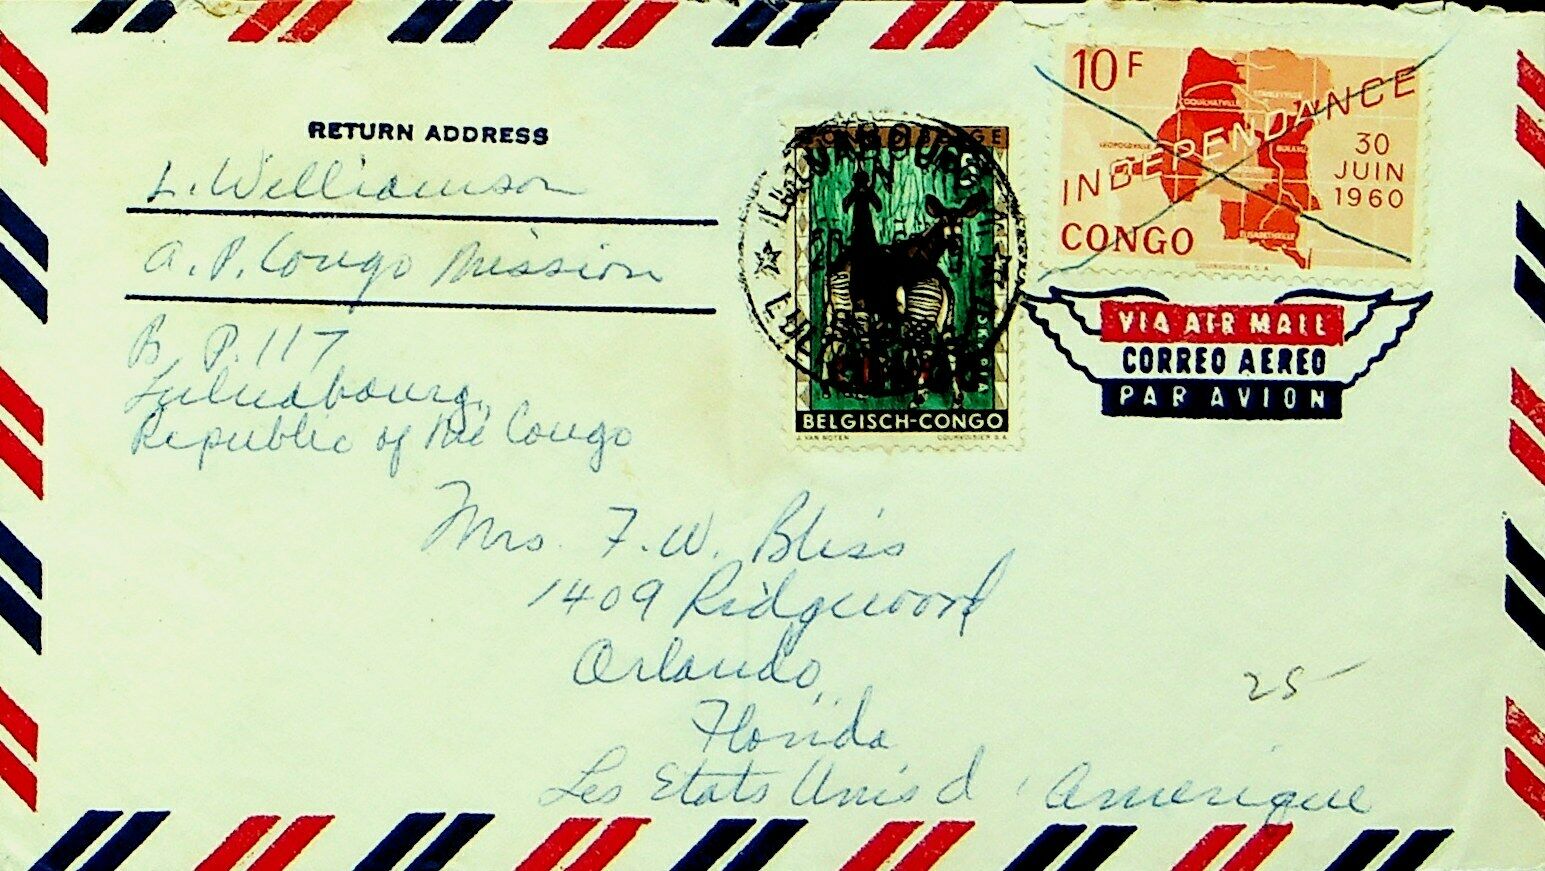 RETURN ADDRESS
L. Williamson
A. P. Congo Mission
B. P. 117
Luluabourg,
Republic of the Congo
BELGISCH-CONGO
J. VAN NOTEN COURVOISIER S.A.
10 F
INDEPENDANCE
30
JUIN
1960
CONGO
COQUILHATVILLE
STANLEYVILLE
LEOPOLDVILLE
BUKAVU
COURVOISIER S.A.
LULUABOURG
VIA AIR MAIL
CORREO AEREO
PAR AVION
Mrs. F. W. Bliss
1409 Ridgewood
Orlando,
Florida
Les Etats Unis d'Amerique
25